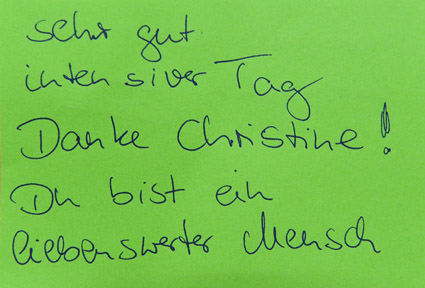 sehr gut.
intensiver Tag
Danke Christine!
Du bist ein
liebenswerter Mensch